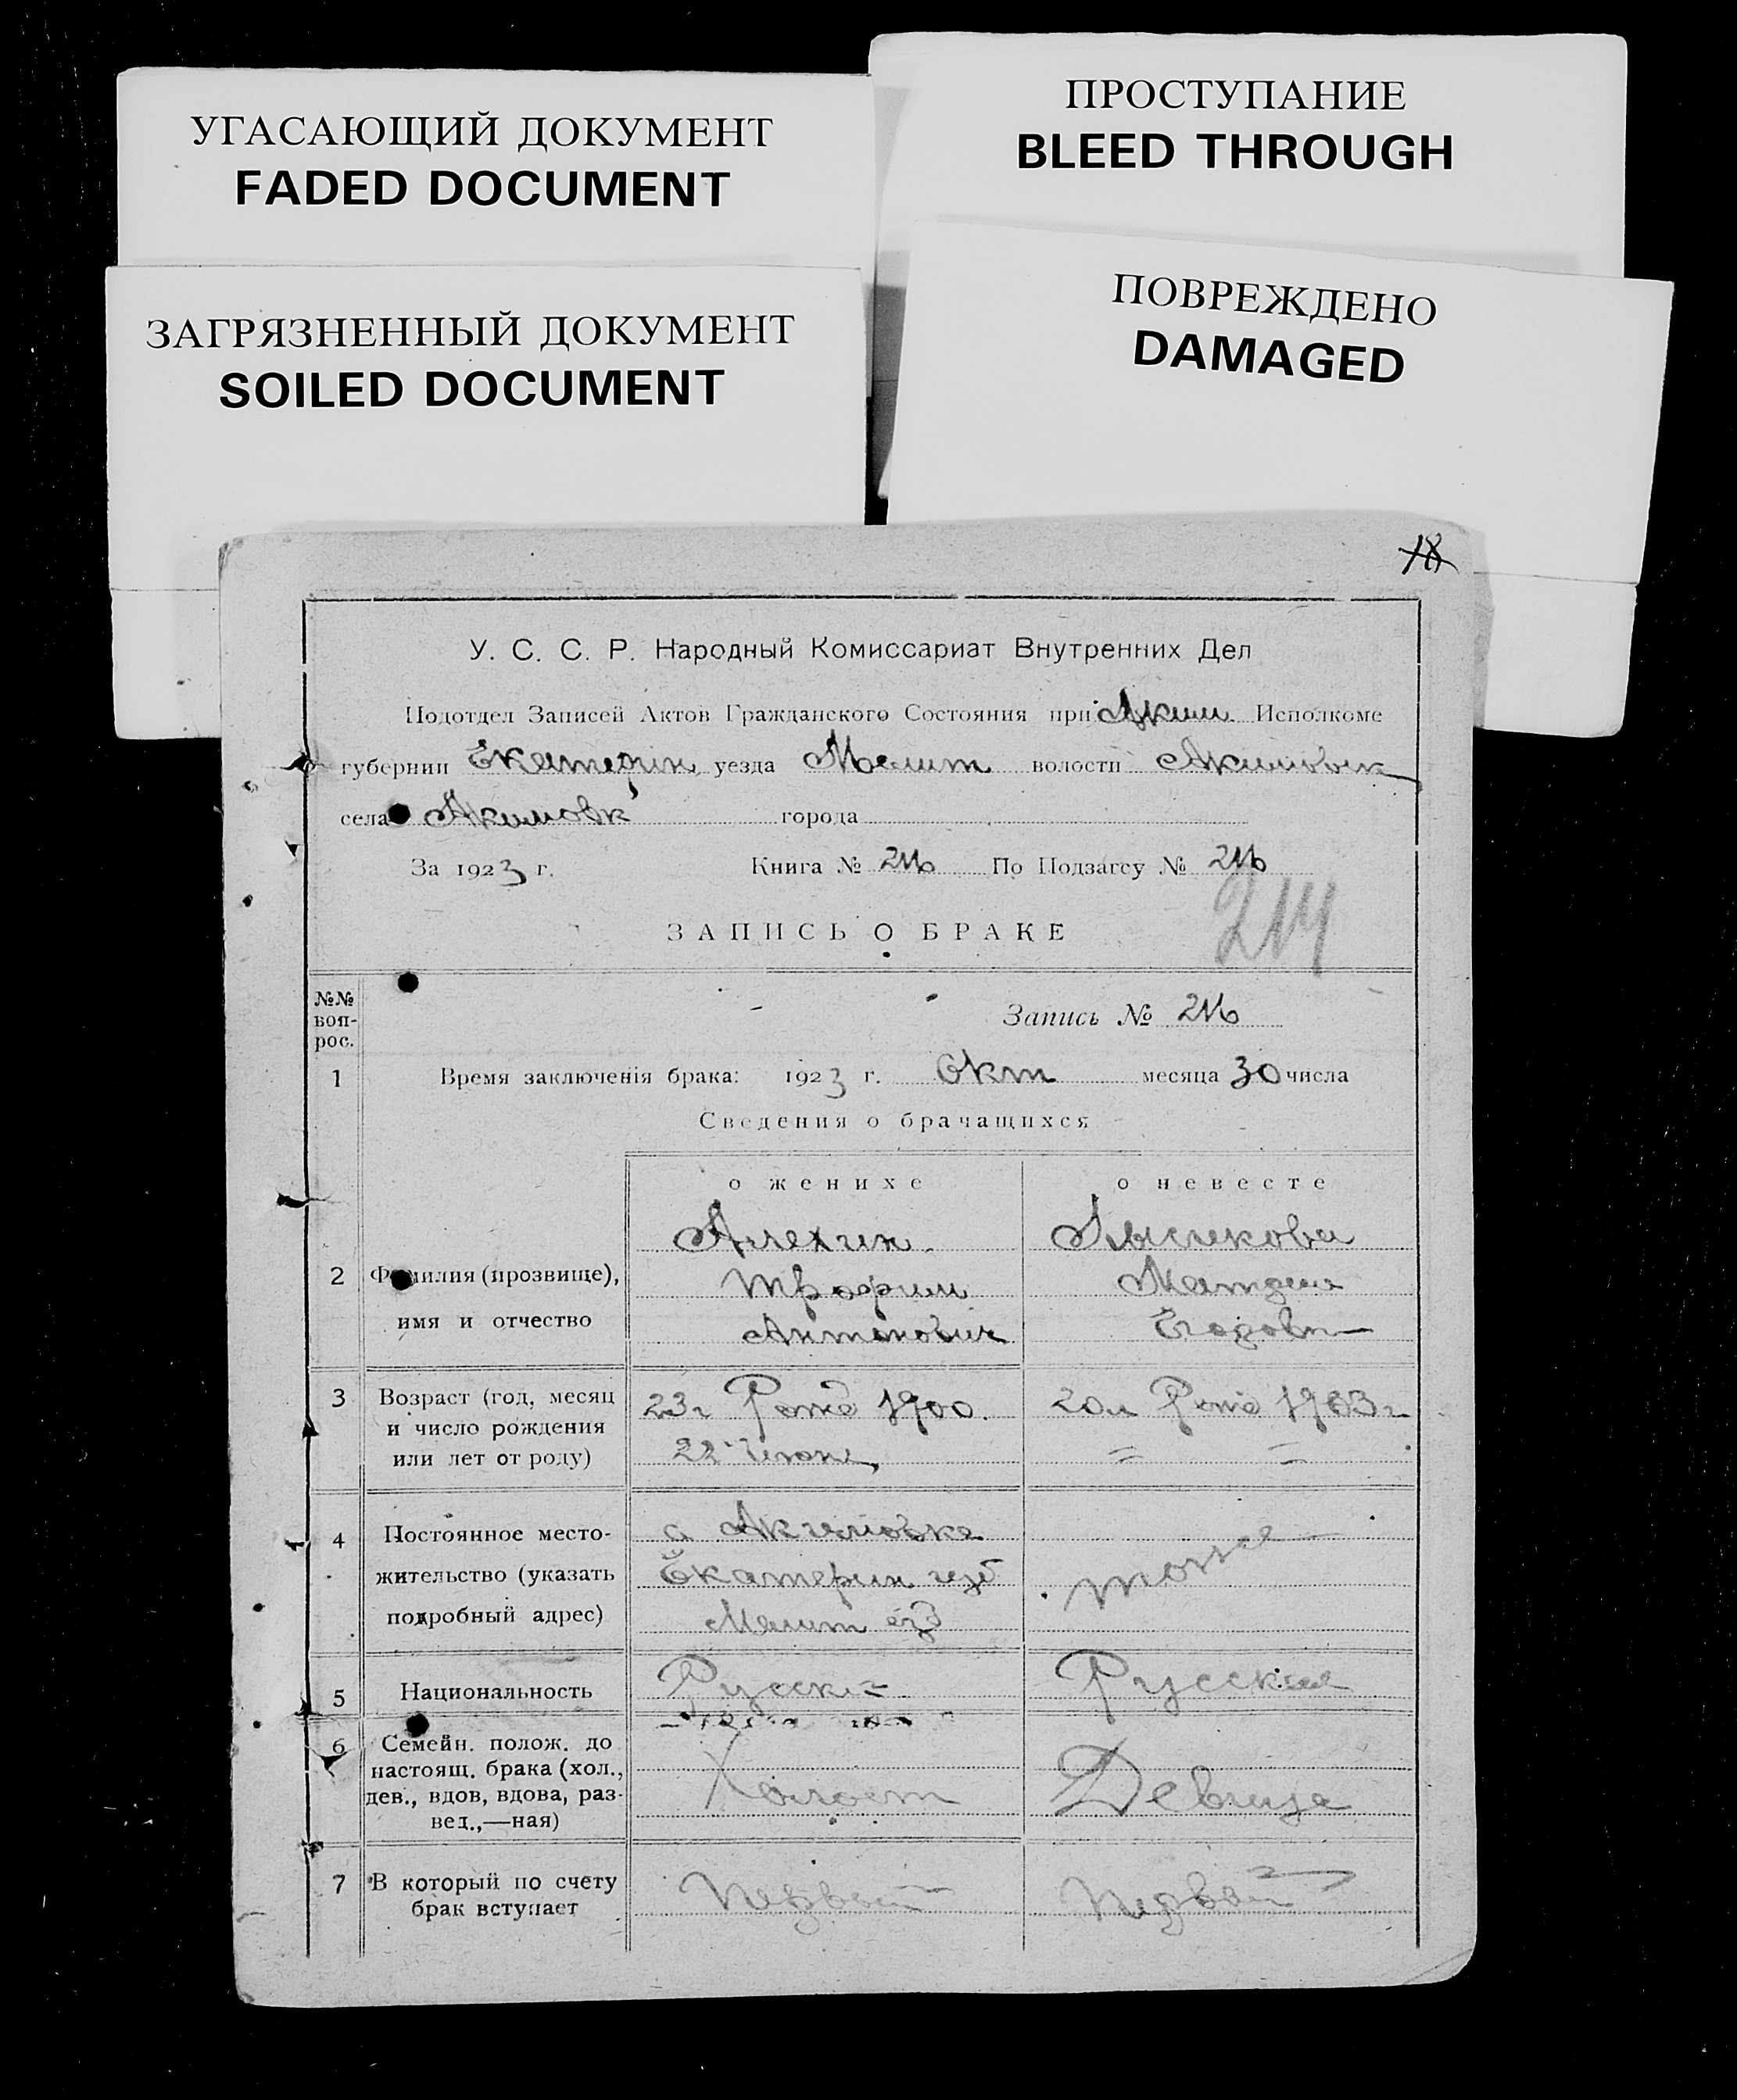 УГАСАЮЩИЙ ДОКУМЕНТ
FADED DOCUMENT
ПРОСТУПАНИЕ
BLEED THROUGH
ЗАГРЯЗНЕННЫЙ ДОКУМЕНТ
SOILED DOCUMENT
ПОВРЕЖДЕНО
DAMAGED
18
У. С. С. Р. Народный Комиссариат Внутренних Дел
Подотдел Записей Актов Гражданского Состояния при Аким. Исполкоме
губернии Екатерин уезда Мелит волости Акимовск
села Акимовк города
За 1923 г. Книга № По Подзагсу №
214
ЗАПИСЬ О БРАКЕ
№№ воп-рос.
Запись №
1 Время заключенія брака: 1923 г. Окт месяца 30 числа
Сведения о брачащихся
о женихе о невесте
Алехин
2 Фамилия (прозвище), Трофим
имя и отчество Антонович Егоровн
3 Возраст (год, месяц 23 г Рожд 1900. 20 л Рожд 1903 г
и число рождения 22 Июня
или лет от роду)
4 Постоянное место- с Акимовка
жительство (указать Екатерин губ тоже
подробный адрес) Мелит
5 Национальность Русский Русская
6 Семейн. полож. до
настоящ. брака (хол.,
дев., вдов, вдова, раз- Холост Девица
вед.,—ная)
7 В который по счету Первый Первый
брак вступает